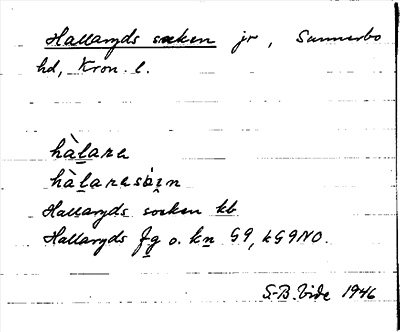 Hallaryds socken jr, Sunnerbo
hd, Kron. l.
hàlara
hàlarasòkn
Hallaryds socken kb
Hallaryds fg o. kn G9, kG9NO.
S-B. Vide 1946